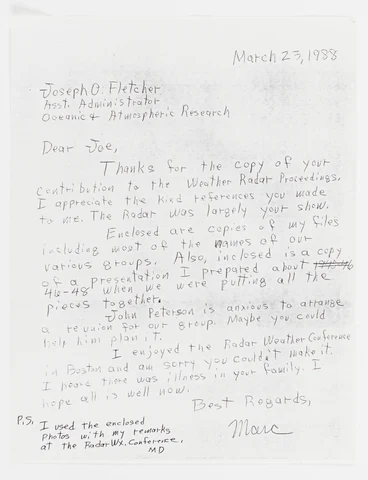 March 23, 1988
Joseph O. Fletcher
Asst. Administrator
Oceanic & Atmospheric Research
Dear Joe,
Thanks for the copy of your
contribution to the Weather Radar Proceedings.
I appreciate the kind references you made
to me. The Radar was largely your show.
Enclosed are copies of my files
including most of the names of our
various groups. Also, inclosed is a copy
of a presentation I prepared about
46-48 when we were putting all the
pieces together.
John Peterson is anxious to arrange
a reunion for our group. Maybe you could
help him plan it.
I enjoyed the Radar Weather Conference
in Boston and am sorry you couldn't make it.
I heard there was illness in your family. I
hope all is well now.
Best Regards,
Marc
P.S. I used the enclosed
photos with my remarks
at the Radar Wx. Conference.
MD